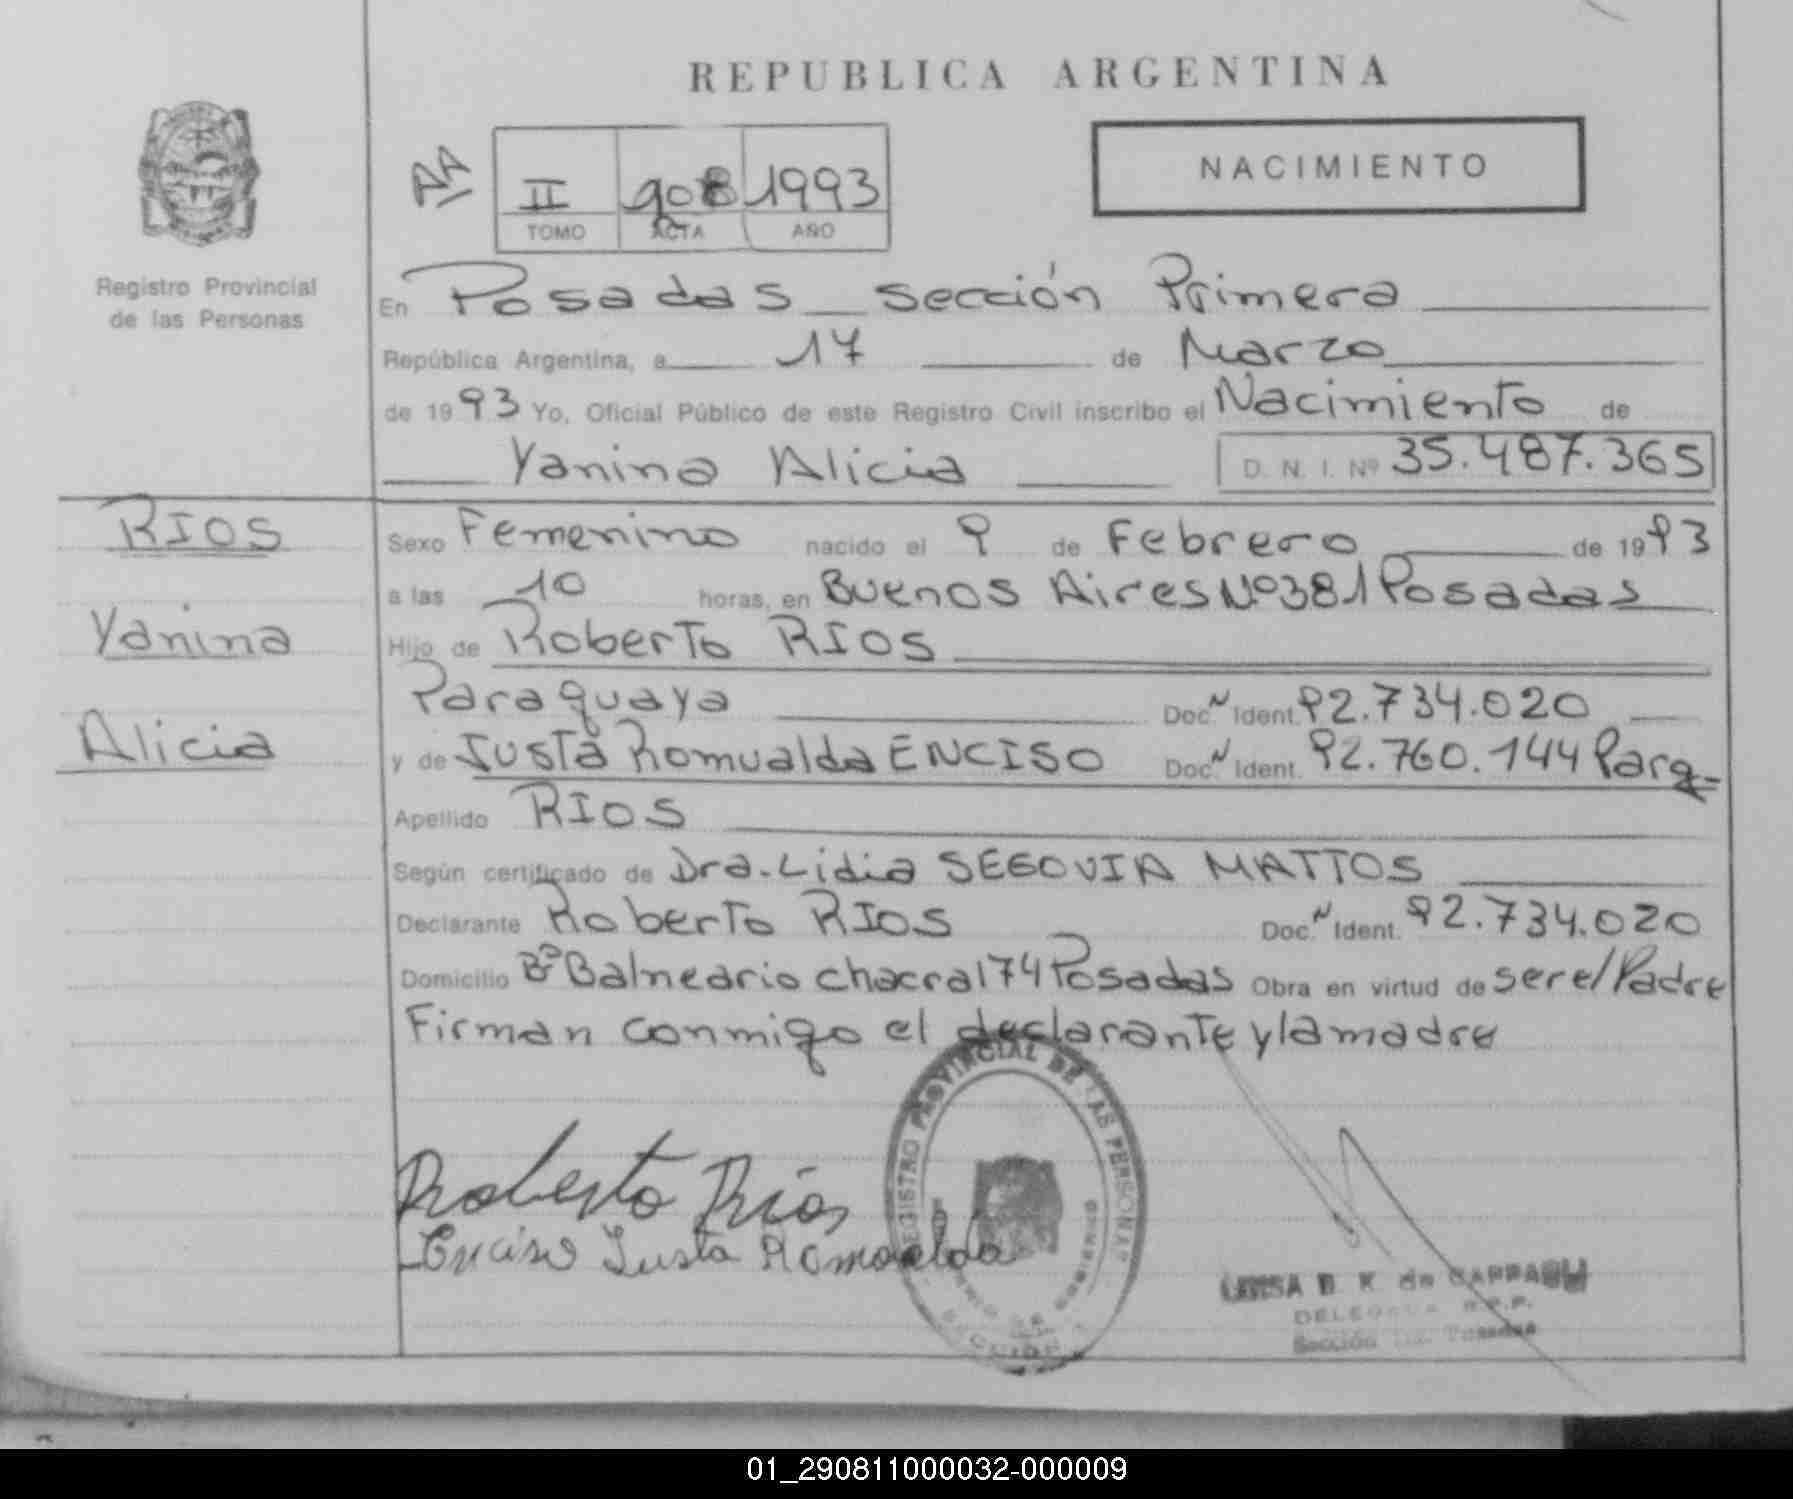 REPUBLICA ARGENTINA
NACIMIENTO
II 908 1993
TOMO ACTA AÑO
Registro Provincial
de las Personas
En Posadas sección Primera
República Argentina, a 17 de Marzo
de 1993 Yo, Oficial Público de este Registro Civil inscribo el Nacimiento de
Yanina Alicia D. N. I. Nº 35.487.365
RIOS
Yanina
Alicia
Sexo Femenino nacido el 9 de Febrero de 1993
a las 10 horas, en Buenos Aires Nº 381 Posadas
Hijo de Roberto RIOS
Paraguaya Doc. Ident. 92.734.020
y de Justa Romualda ENCISO Doc. Ident. 92.760.144 Parg.
Apellido RIOS
Según certificado de Dra. Lidia SEGOVIA MATTOS
Declarante Roberto RIOS Doc. Ident. 92.734.020
Domicilio Bº Balneario chacra 174 Posadas Obra en virtud de ser el Padre
Firman conmigo el declarante y la madre
Roberto Ríos
Enciso Justa Romualda
REGISTRO PROVINCIAL DE LAS PERSONAS
Sección Posadas
01_290811000032-000009